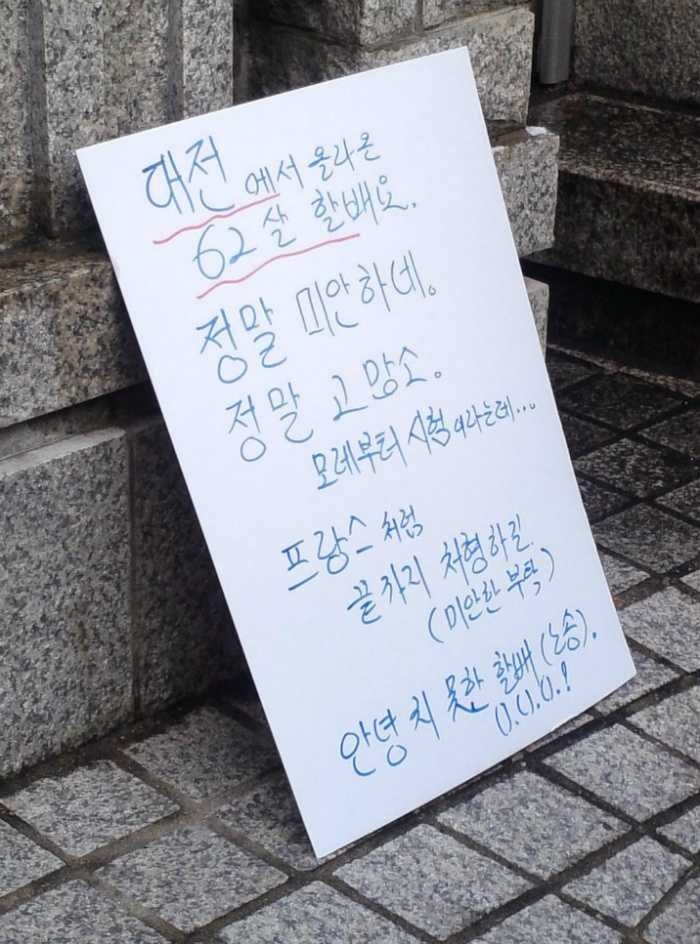 대전에서 올라온
62살 할배요.
정말 미안하네.
정말 고맙소.
모레부터 시험이라는데...
프랑스처럼
끝까지 처형하길.
(미안한 부탁)
안녕치 못한 할배(노송).